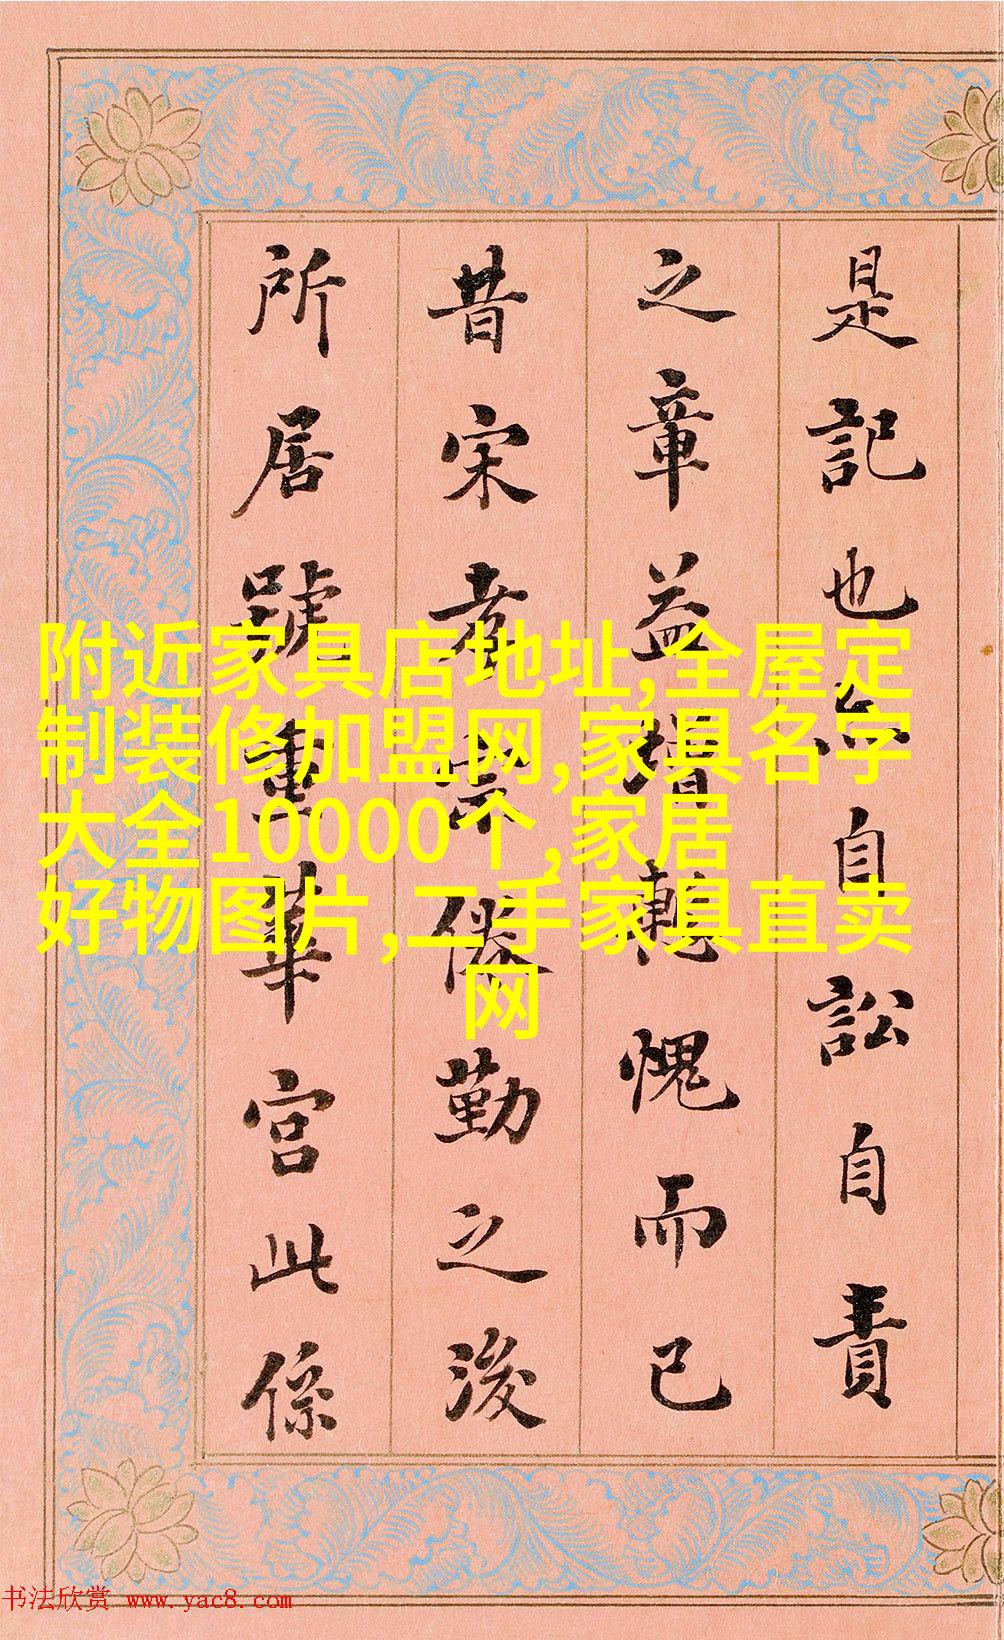 是記也亦自訟自責
之章益增慙愧而已
昔宋孝宗倦勤之後
所居號重華宮此係
附近家具店地址,全屋定
制装修加盟网,家具名字
大全10000个,家居
好物图片,二手家具直卖
网
书法欣赏 www.yac8.com